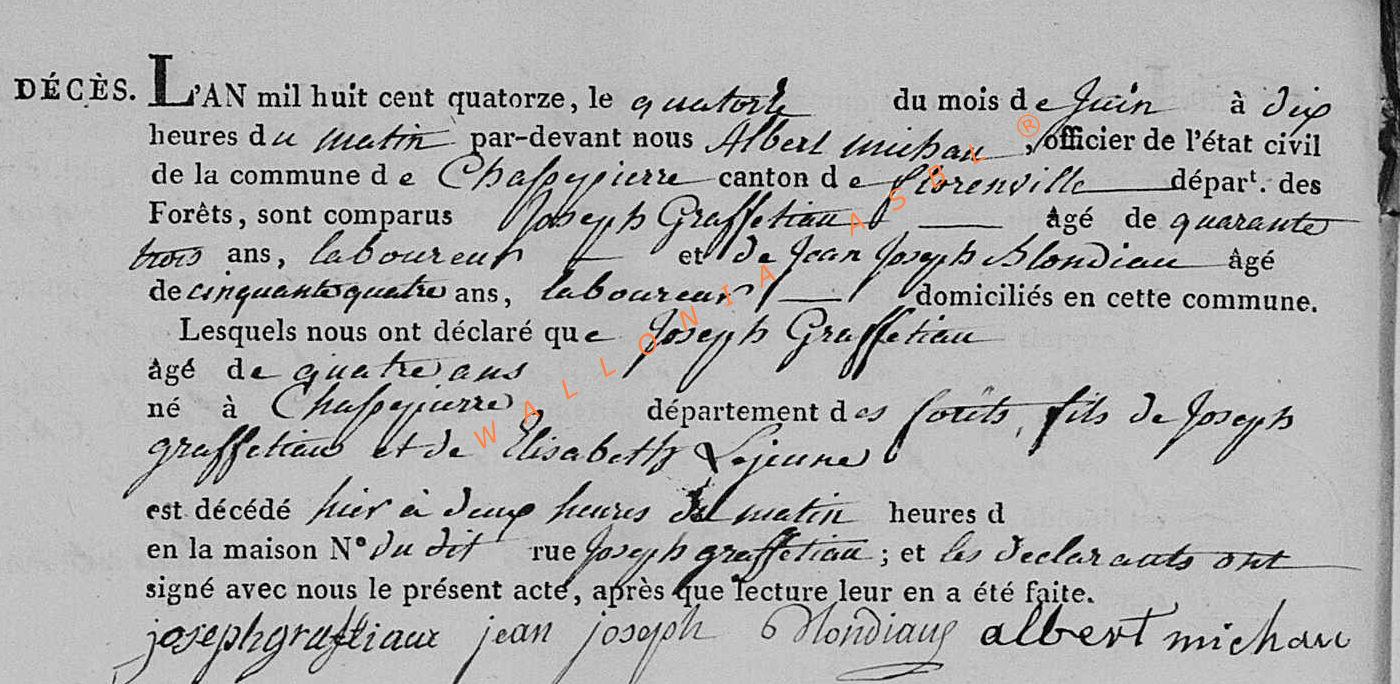 DÉCÈS. L'AN mil huit cent quatorze, le quatorze du mois de Juin à dix
heures du matin par-devant nous Albert michau, officier de l'état civil
de la commune de Chassepierre canton de florenville départ. des
Forêts, sont comparus Joseph Graffetiau âgé de quarante
trois ans, laboureur et de Jean Joseph Blondiau âgé
de cinquante quatre ans, laboureur domiciliés en cette commune.
Lesquels nous ont déclaré que Joseph Graffetiau
âgé de quatre ans
né à Chassepierre, département des forêts, fils de Joseph
graffetiau et de Elisabeth Lejeune
est décédé hier à deux heures du matin heures d
en la maison N° du dit rue Joseph graffetiau ; et les declarants ont
signé avec nous le présent acte, après que lecture leur en a été faite.
joseph graftiaux jean joseph Blondiaux albert michau
WALLONIA ASBL ®